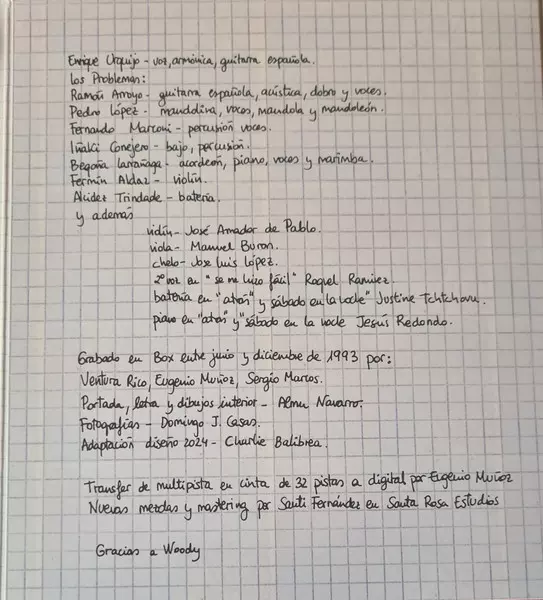 Enrique Urquijo - voz, armónica, guitarra española.
Los Problemas:
Ramón Arroyo - guitarra española, acústica, dobro y voces.
Pedro López - mandolina, voces, mandola y mandoleón.
Fernando Marconi - percusión voces.
Iñaki Conejero - bajo, percusión.
Begoña Larrañaga - acordeón, piano, voces y marimba.
Fermín Aldaz - violín.
Alcides Trindade - batería.
y además
violín - José Amador de Pablo.
viola - Manuel Buron.
chelo - Jose luis lópez.
2ª voz en "se me hizo fácil" Raquel Ramirez.
batería en "atrás" y sábado en la noche" Justine
piano en "atrás" y "sábado en la noche Jesús Redondo.
Grabado en Box entre junio y diciembre de 1993 por:
Ventura Rico, Eugenio Muñoz, Sergio Marcos.
Portada, letra y dibujos interior - Almu Navarro.
Fotografías - Domingo J. Casas.
Adaptación diseño 2024 - Charlie Balibrea.
Transfer de multipista en cinta de 32 pistas a digital por Eugenio Muñoz
Nuevas mezclas y mastering por Santi Fernández en Santa Rosa Estudios
Gracias a Woody